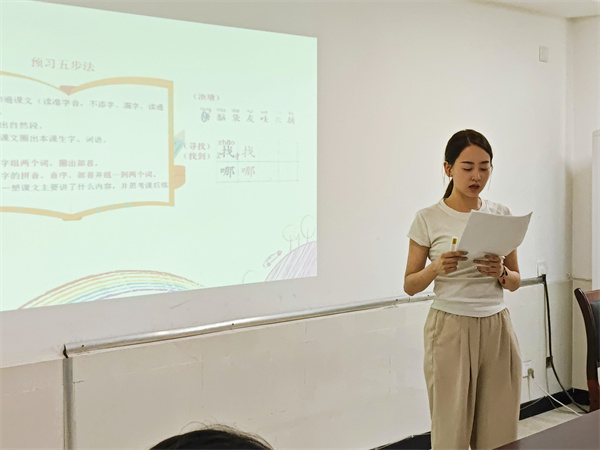 预习五步法
课文（读准字音，不添字、漏字，读通
出自然段。
课文圈出本课生字、词语。
字组两个词，圈出部首。
字的拼音、音序、部首并组一到两个词。
一想课文主要讲了什么内容，并思考课后练
脑
（寻找）
（找到）
找 找
哪 哪